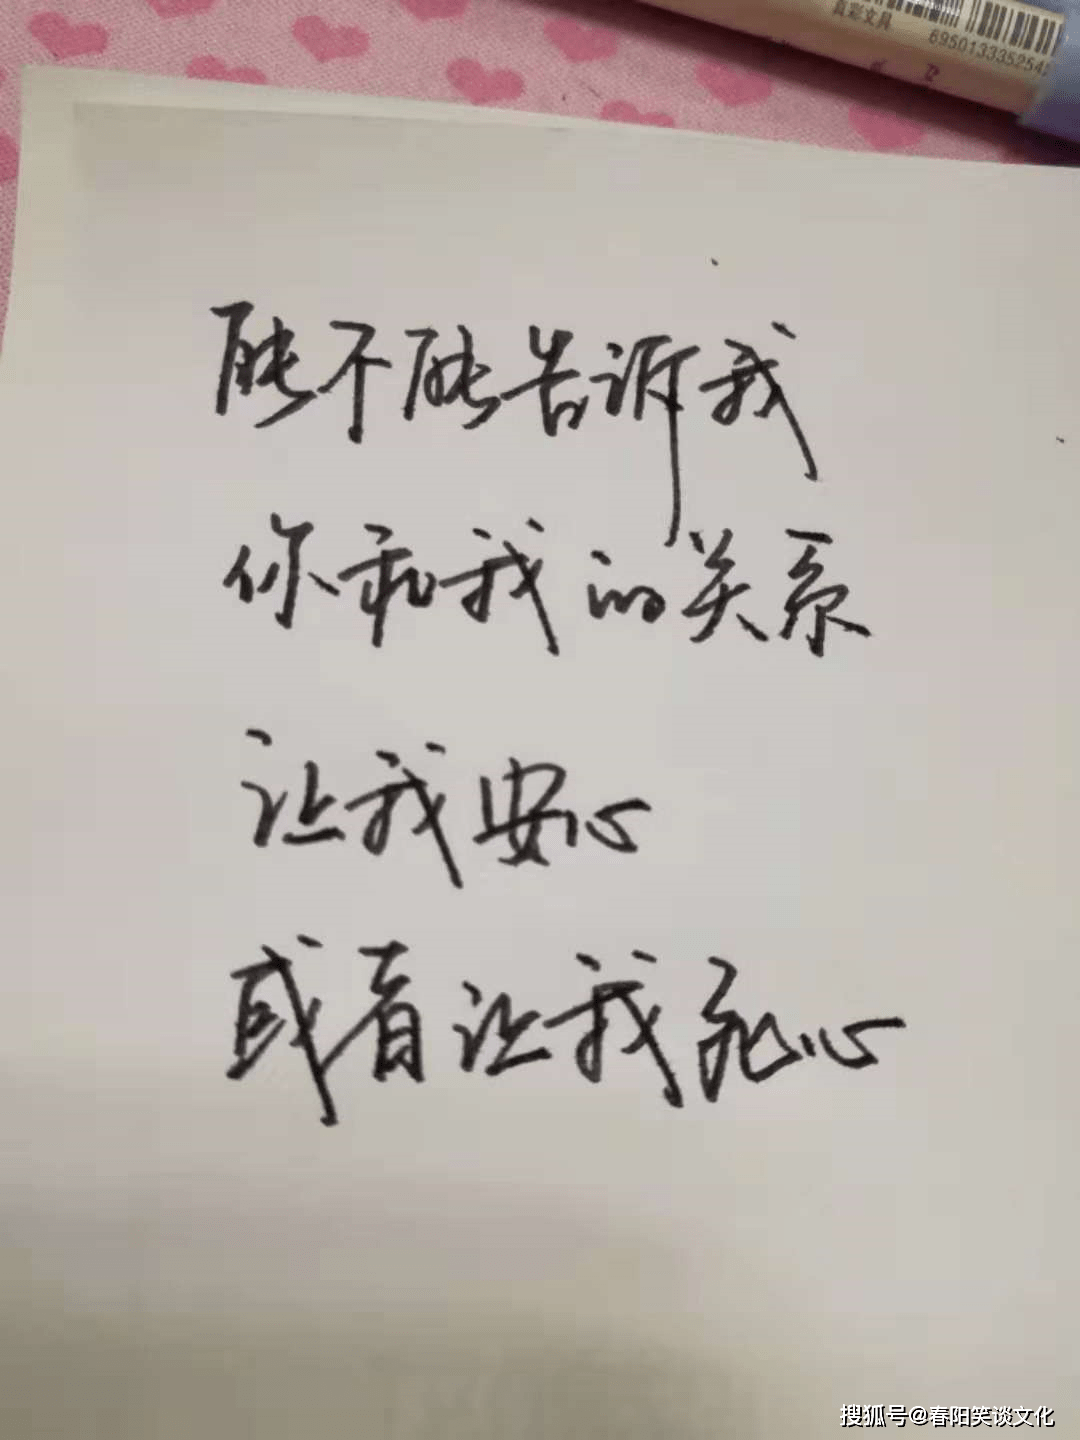 真彩文具
695013335254
能不能告诉我
你和我的关系
让我安心
或者让我死心
搜狐号@春阳笑谈文化